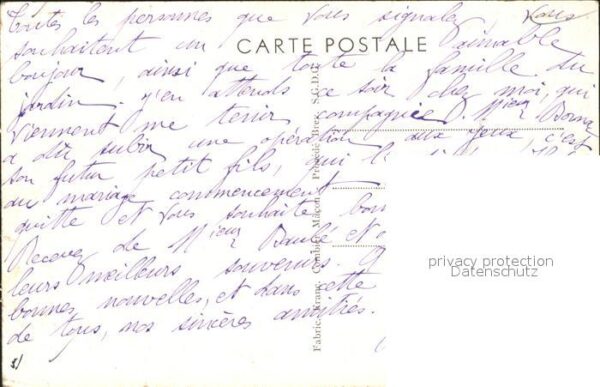 Toutes les personnes que vous signalez, vous
souhaitent un aimable
CARTE POSTALE
bonjour, ainsi que toute la famille du
jardin. J'en attends ce soir chez moi, qui
viennent me tenir compagnie. Mieur
a dû subir une opération aux yeux, c'est
son futur petit fils, qui l'
au mariage commencement
quitte et vous souhaite bon
Recevez de Mieur Baulé et
leurs meilleurs souvenirs.
bonnes nouvelles, et dans cette
de tous, nos sincères amitiés.
Fabric. Franç. Combier Mâcon Procédé Brex. S.G.D.G.
privacy protection
Datenschutz